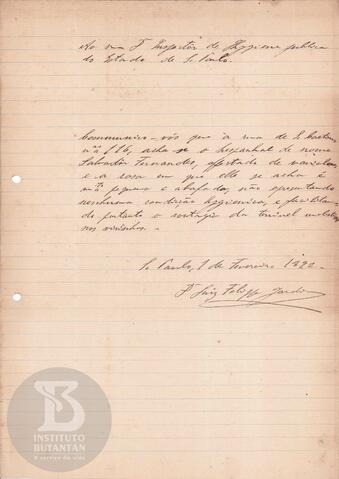 Ao Dr. Inspector de Hygiene publica
do Estado de S. Paulo.
Communico-vos que á rua de S. Caetano
nº 116, acha-se o hespanhol de nome
Salvador Fernandes, affectado de variola
e a casa em que elle se acha é
mto pequena e abafada, não apresentando
nenhuma condição hygienica, e facilitan-
do portanto o contagio da terrivel molestia
nos visinhos.
S. Paulo, 1 de Fevereiro 1892
Dr Luiz Felippe
INSTITUTO
BUTANTAN
A serviço da vida